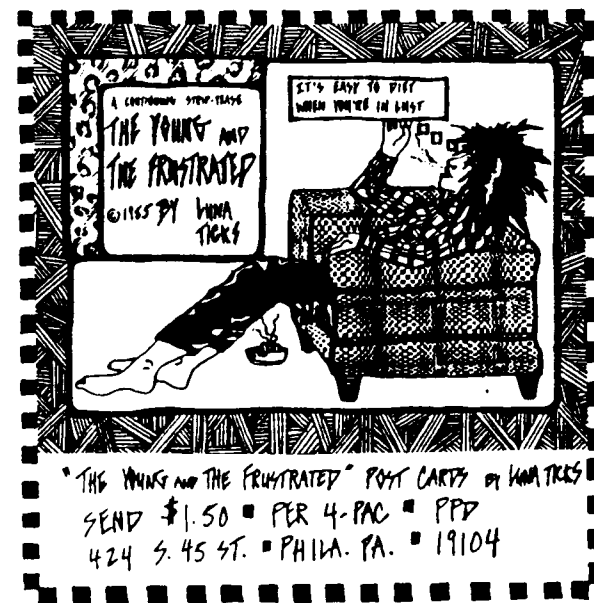 A CONTINUING STRIP-TEASE
THE YOUNG AND
THE FRUSTRATED
©1985 BY LUNA
TICKS
IT'S EASY TO DIET
WHEN YOU'RE IN LUST
"THE YOUNG AND THE FRUSTRATED" POST CARDS BY LUNA TICKS
SEND $1.50 ▪ PER 4-PAC ▪ PPD
424 S. 45 ST. ▪ PHILA. PA. ▪ 19104